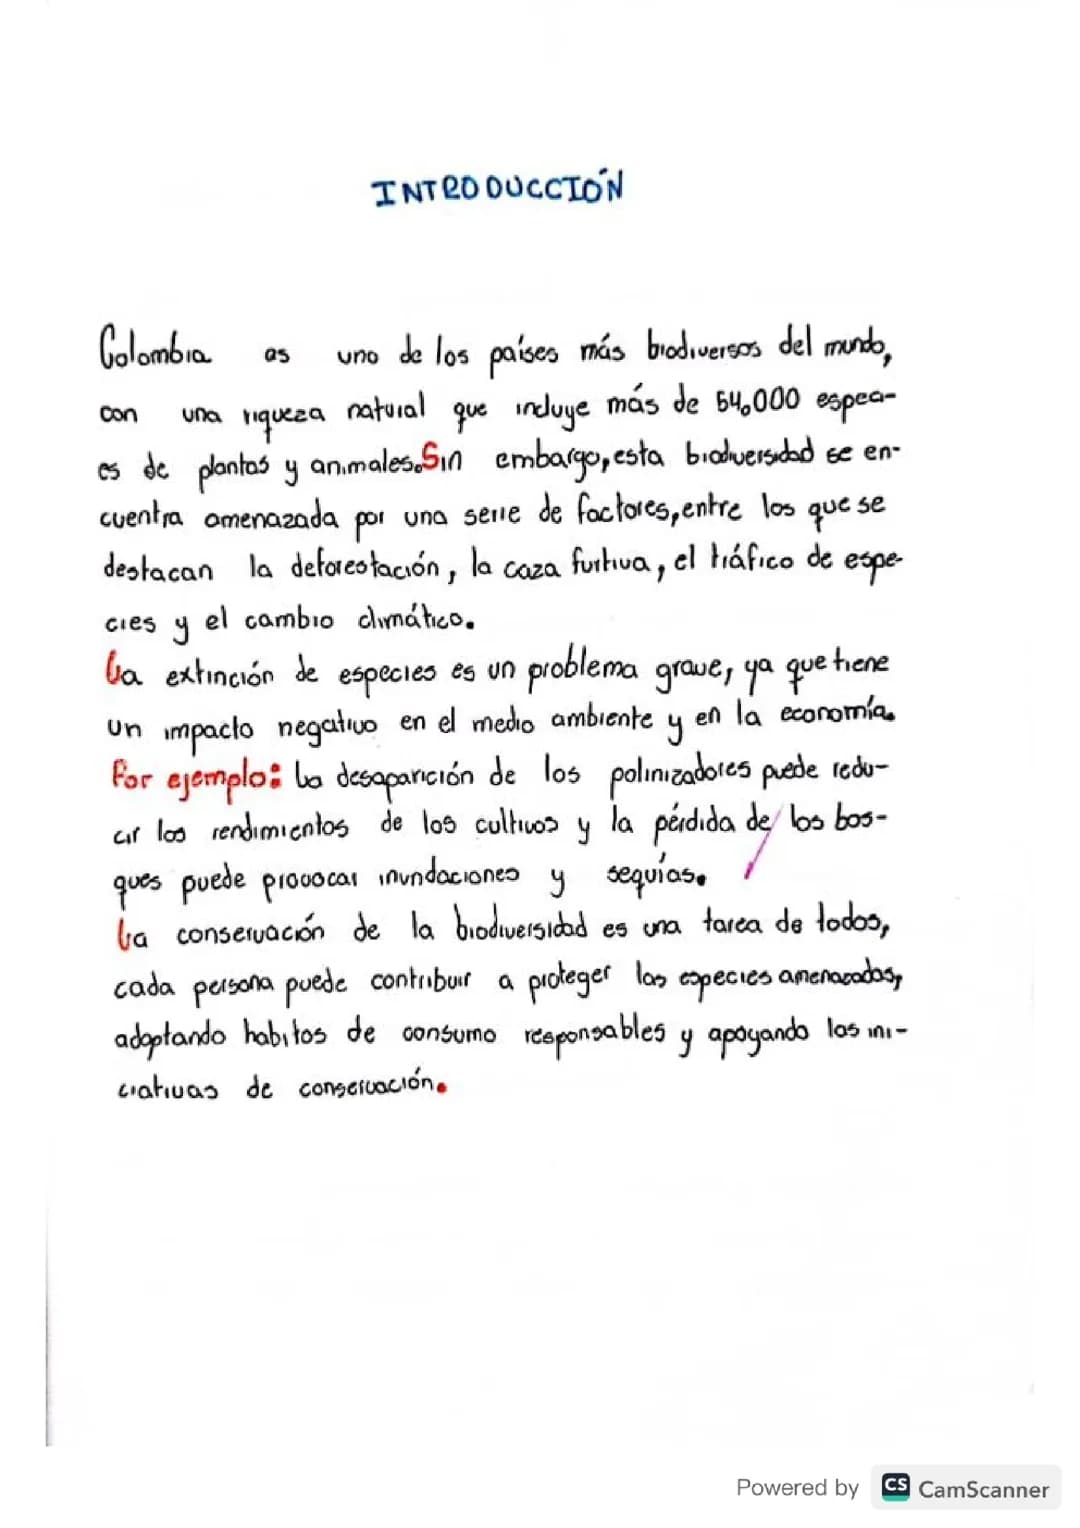 INTRODUCCIÓN
Colombia es uno de los países más biodiversos del mundo,
con una riqueza natural que incluye más de 54,000 especi-
es de plantas y animales. Sin embargo, esta biodiversidad se en-
cuentra amenazada por una serie de factores, entre los que se
destacan la deforestación, la caza furtiva, el tráfico de espe-
cies y el cambio climático.
La extinción de especies es un problema grave, ya que tiene
un impacto negativo en el medio ambiente y en la economía.
Por ejemplo: La desaparición de los polinizadores puede redu-
cir los rendimientos de los cultivos y la pérdida de los bos-
ques puede provocar inundaciones y sequías.
La conservación de la biodiversidad es una tarea de todos,
cada persona puede contribuir a proteger las especies amenazadas,
adoptando habitos de consumo responsables y apoyando las ini-
ciativas de conservación.
Powered by CS CamScanner